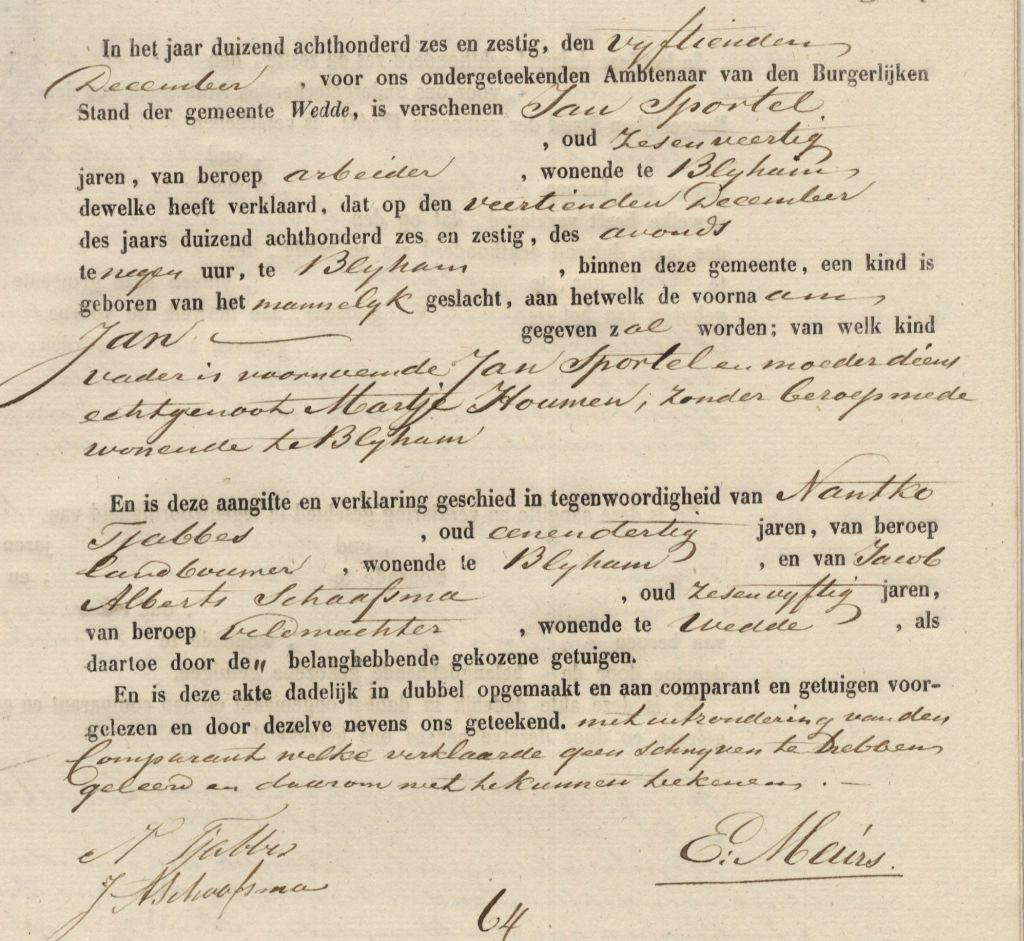 In het jaar duizend achthonderd zes en zestig, den vyftienden
December, voor ons ondergeteekenden Ambtenaar van den Burgerlijken
Stand der gemeente Wedde, is verschenen Jan Sportel
, oud zesenveertig
jaren, van beroep arbeider, wonende te Blyham,
dewelke heeft verklaard, dat op den veertienden December
des jaars duizend achthonderd zes en zestig, des avonds
te negen uur, te Blyham, binnen deze gemeente, een kind is
geboren van het mannelyk geslacht, aan hetwelk de voornaam
Jan gegeven zal worden; van welk kind
vader is voornoemde Jan Sportel en moeder diens
echtgenoot Martje Houwen, zonder beroep mede
wonende te Blyham
En is deze aangifte en verklaring geschied in tegenwoordigheid van Nantko
Tjabbes, oud eenendertig jaren, van beroep
landbouwer, wonende te Blyham, en van Jacob
Alberts Schaafsma, oud zesenvyftig jaren,
van beroep veldwachter, wonende te Wedde, als
daartoe door de" belanghebbende gekozene getuigen.
En is deze akte dadelijk in dubbel opgemaakt en aan comparant en getuigen voor-
gelezen en door dezelve nevens ons geteekend. met uitzondering van den
Comparant welke verklaarde geen schryven te hebben
geleerd en daarom niet te kunnen tekenen. —
N Tjabbes
E: Meurs.
J A Schaafsma
64